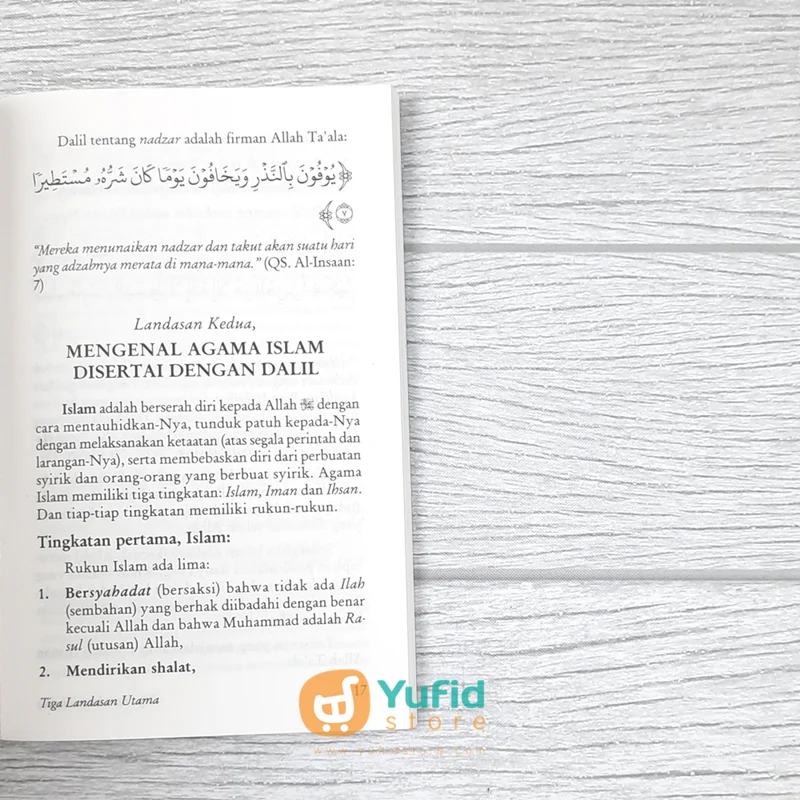 Dalil tentang nadzar adalah firman Allah Ta'ala:
﴿يُوفُونَ بِٱلنَّذْرِ وَيَخَافُونَ يَوْمًا كَانَ شَرُّهُۥ مُسْتَطِيرًا
٧ ﴾
"Mereka menunaikan nadzar dan takut akan suatu hari
yang adzabnya merata di mana-mana." (QS. Al-Insaan:
7)
Landasan Kedua,
MENGENAL AGAMA ISLAM
DISERTAI DENGAN DALIL
Islam adalah berserah diri kepada Allah ﷻ dengan
cara mentauhidkan-Nya, tunduk patuh kepada-Nya
dengan melaksanakan ketaatan (atas segala perintah dan
larangan-Nya), serta membebaskan diri dari perbuatan
syirik dan orang-orang yang berbuat syirik. Agama
Islam memiliki tiga tingkatan: Islam, Iman dan Ihsan.
Dan tiap-tiap tingkatan memiliki rukun-rukun.
Tingkatan pertama, Islam:
Rukun Islam ada lima:
1. Bersyahadat (bersaksi) bahwa tidak ada Ilah
(sembahan) yang berhak diibadahi dengan benar
kecuali Allah dan bahwa Muhammad adalah Ra-
sul (utusan) Allah,
2. Mendirikan shalat,
Tiga Landasan Utama
17
Yufid
store
www.yufidstore.com